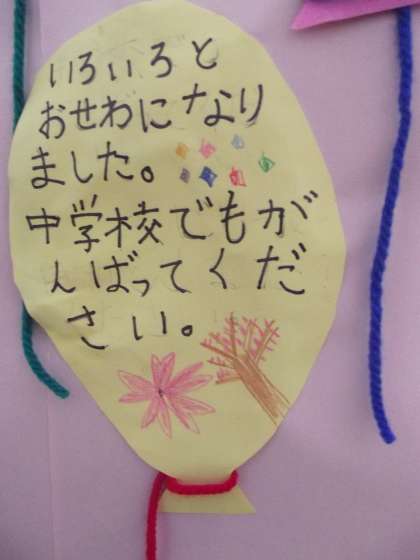 いろいろと
おせわになり
ました。
中学校でもが
んばってくだ
さい。